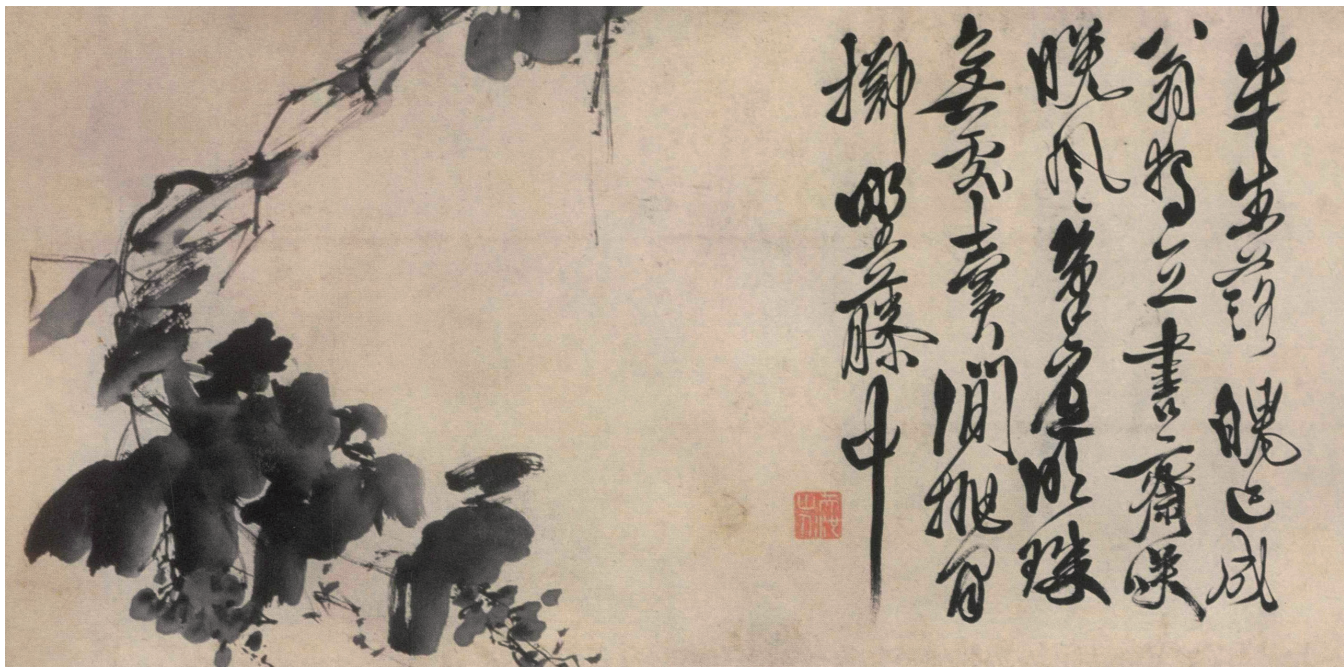 半生落魄已成
翁獨立書齋嘯
晚風筆底明珠
無處賣閒拋閒
擲野藤中
天池山人